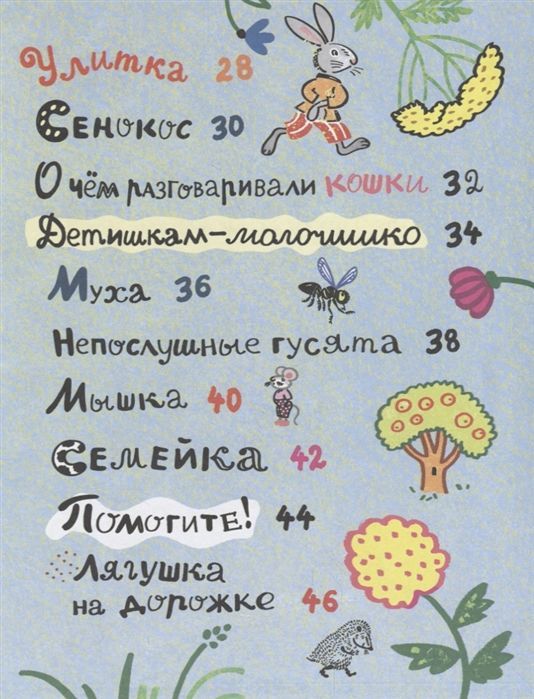 Улитка 28
Сенокос 30
О чём разговаривали кошки 32
Детишкам-молочишко 34
Муха 36
Непослушные гусята 38
Мышка 40
Семейка 42
Помогите! 44
Лягушка
на дорожке 46